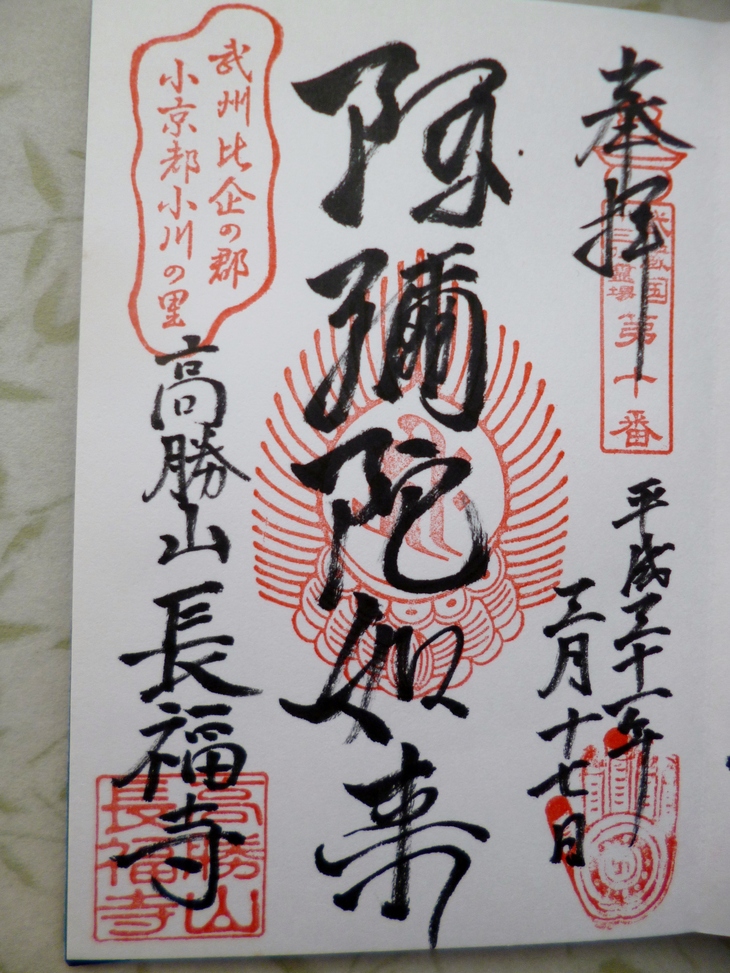 奉拝
第十番
平成三十一年
三月十七日
阿彌陀如来
武州比企の郡
小京都小川の里
高勝山長福寺
高勝山
長福寺